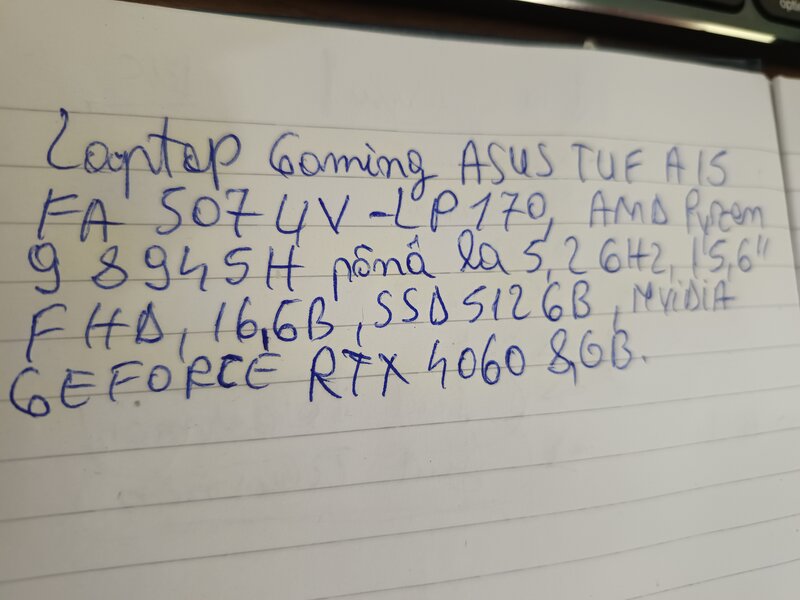 Laptop Gaming ASUS TUF A15
FA 5074V-LP170, AMD Ryzen
9 8945H până la 5,2 GHz, 15,6"
FHD, 16,GB, SSD 512 GB, NViDiA
GEFORCE RTX 4060 8,GB.